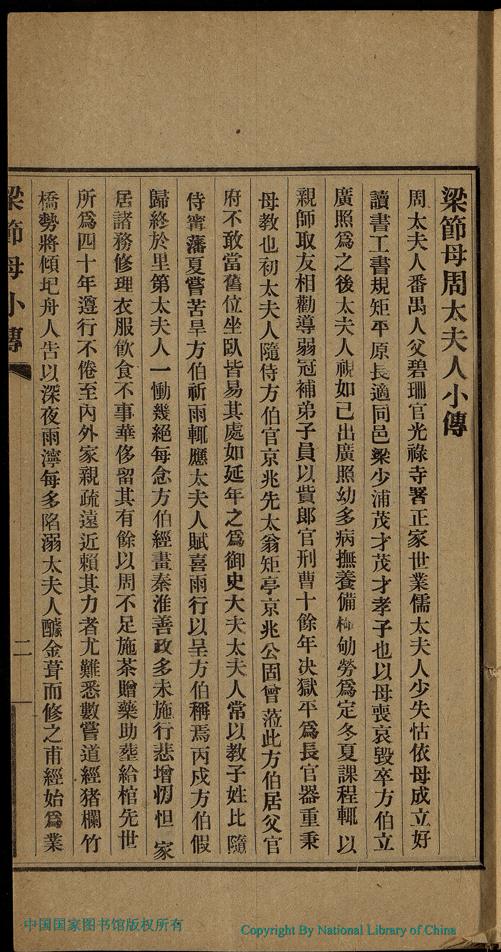 梁節母周太夫人小傳
周太夫人番禺人父碧珊官光祿寺署正家世業儒太夫人少失怙依母成立好
讀書工書規矩平原長適同邑梁少浦茂才茂才孝子也以母喪哀毀卒方伯立
廣照爲之後太夫人視如已出廣照幼多病撫養備極劬勞爲定冬夏課程輒以
親師取友相勸導弱冠補弟子員以貲郞官刑曹十餘年決獄平爲長官器重秉
母教也初太夫人隨侍方伯官京兆先太翁矩亭京兆公固曾蒞此方伯居父官
府不敢當舊位坐臥皆易其處如延年之爲御史大夫太夫人常以教子姓比隨
侍甯藩夏嘗苦旱方伯祈雨輒應太夫人賦喜雨行以呈方伯稱焉丙戍方伯假
歸終於里第太夫人一慟幾絕每念方伯經畫秦淮善政多未施行悲增忉怛家
居諸務修理衣服飲食不事華侈留其有餘以周不足施茶贈藥助塟給棺先世
所爲四十年遵行不倦至內外家親疏遠近賴其力者尤難悉數嘗道經猪欄竹
橋勢將傾圯舟人告以深夜雨濘每多陷溺太夫人醵金葺而修之甫經始爲業
梁節母小傳
二
中国国家图书馆版权所有
Copyright By National Library of China